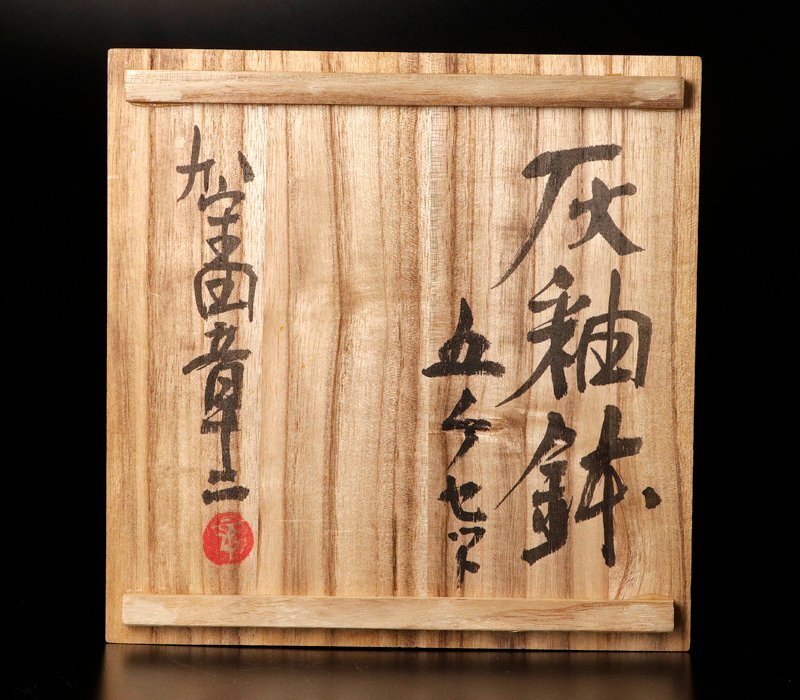 灰釉鉢
五ケセット
加守田章二